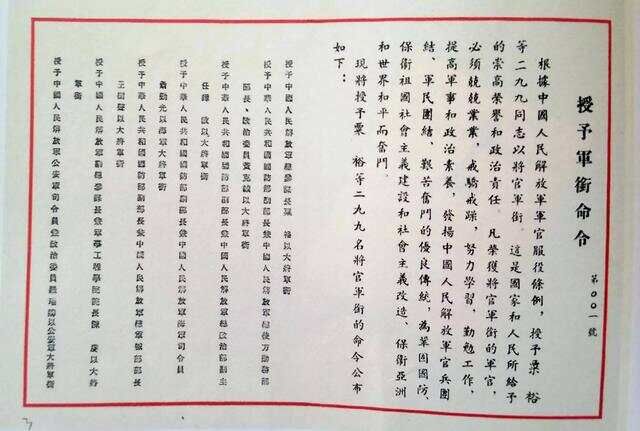 授予軍銜命令
第〇〇一號
根據中國人民解放軍軍官服役條例，授予粟 裕
等二九九同志以將官軍銜。這是國家和人民所給予
的崇高榮譽和政治責任。凡榮獲將官軍銜的軍官，
必須兢兢業業，戒驕戒躁，努力學習，勤勉工作，
提高軍事和政治素養，發揚中國人民解放軍官兵團
結、軍民團結、艱苦奮鬥的優良傳統，為鞏固國防、
保衛祖國社會主義建設和社會主義改造、保衛亞洲
和世界和平而奮鬥。
現將授予粟 裕等二九九名將官軍銜的命令公布
如下：
授予中國人民解放軍總參謀長粟 裕以大將軍銜
授予中華人民共和國國防部副部長兼中國人民解放軍總後方勤務部
部長、政治委員黃克誠以大將軍銜
授予中華人民共和國國防部副部長兼中國人民解放軍總政治部副主
任譚 政以大將軍銜
授予中華人民共和國國防部副部長兼中國人民解放軍海軍司令員
蕭勁光以海軍大將軍銜
授予中華人民共和國國防部副部長兼中國人民解放軍總軍械部部長
王樹聲以大將軍銜
授予中國人民解放軍副總參謀長兼軍事工程學院院長陳 賡以大將
軍銜
授予中國人民解放軍公安軍司令員兼政治委員羅瑞卿以公安軍大將軍銜